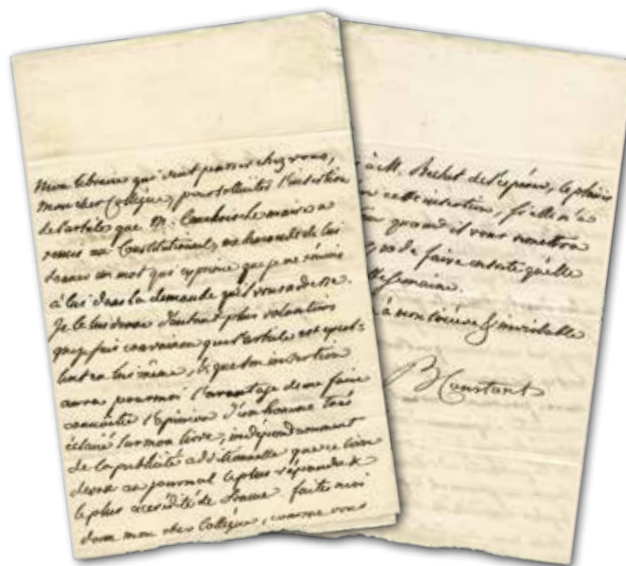 Mon libraire qui vient passer chez vous,
mon cher Collègue, pour solliciter l'insertion
de l'article que M. Cauchois Le maire a
remis au Constitutionnel, me demande de lui
donner un mot qui exprime que je me réunis
à lui dans la demande qu'il vous adresse.
Je le lui donne d'autant plus volontiers
que je suis convaincu que l'article est
en lui même, & que son insertion
aura pour moi l'avantage de me faire
connaitre l'opinion d'un homme très
éclairé sur mon livre, indépendamment
de la publicité additionnelle que ce livre
devra au journal le plus répandu &
le plus accrédité de France. faites moi
donc mon cher Collègue, comme vous
à M. Bechet de l'espoir, le plaisir
cette insertion, si elle n'a
quand il vous remettra
de faire en sorte qu'elle
semaine.
à mon sincère & inviolable
B Constant